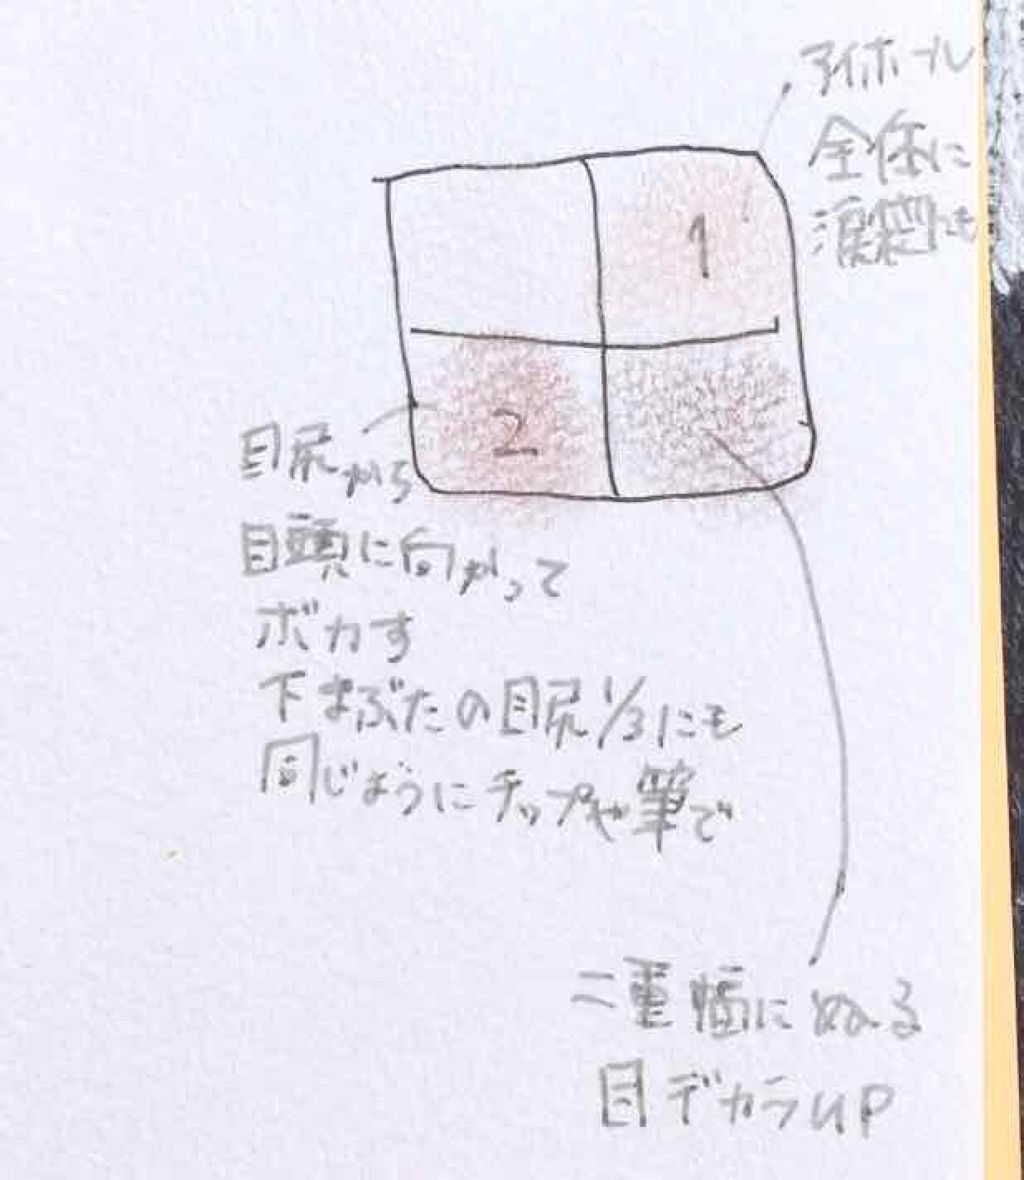 アイホール
全体に
涙袋にも
1
2
目尻から
目頭に向かって
ボカす
下まぶたの目尻1/3にも
同じようにチップや筆で
二重幅にぬる
目デカラUP